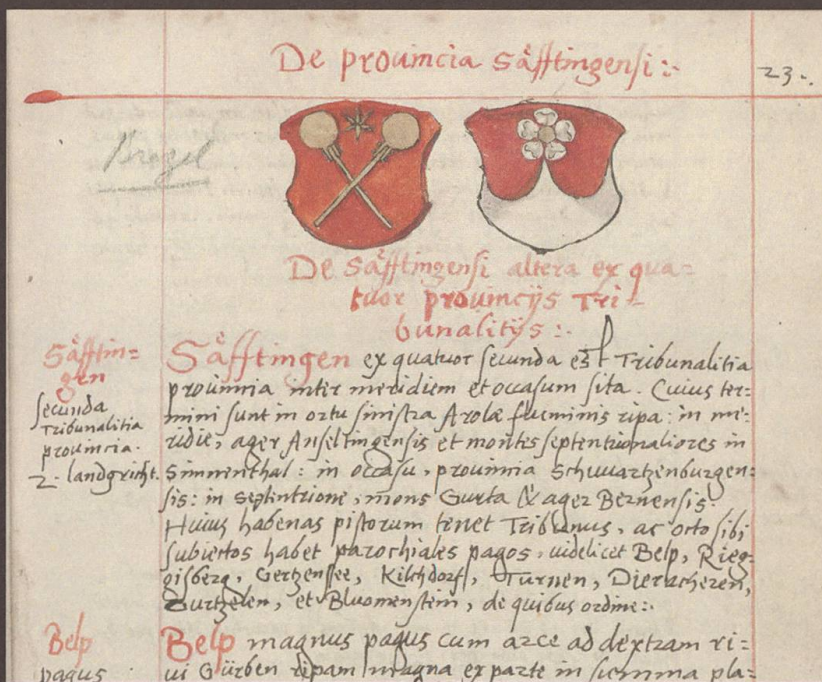 De prouincia Säfftingensi:.
23.
Bregel
De Säfftingensi altera ex qua=
tuor prouincijs Tri=
bunalitijs:.
Säfftin=
gen
secunda
Tribunalitia
prouincia.
2. landgricht.
Säfftingen ex quatuor secunda est Tribunalitia
prouincia inter meridiem et occasum sita. Cuius ter=
mini sunt in ortu sinistra Arolæ fluminis ripa: in me=
ridie, ager Anseltingensis et montes septentrionaliores in
Simnenthal: in occasu, prouincia Schwartzenburgen=
sis: in septentrione, mons Gurta & ager Bernensis.
Huius habenas pistorum tenet Tribunus, ac octo sibi
subiectos habet parochiales pagos, uidelicet Belp, Rieg=
gisberg, Gertzensee, Kilchdorf, Turnen, Dieracheren,
Gurtzelen, et Bluomenstein, de quibus ordine:.
Belp
pagus
Belp magnus pagus cum arce ad dextram ri=
ui Gürben ripam magna ex parte in summa pla=